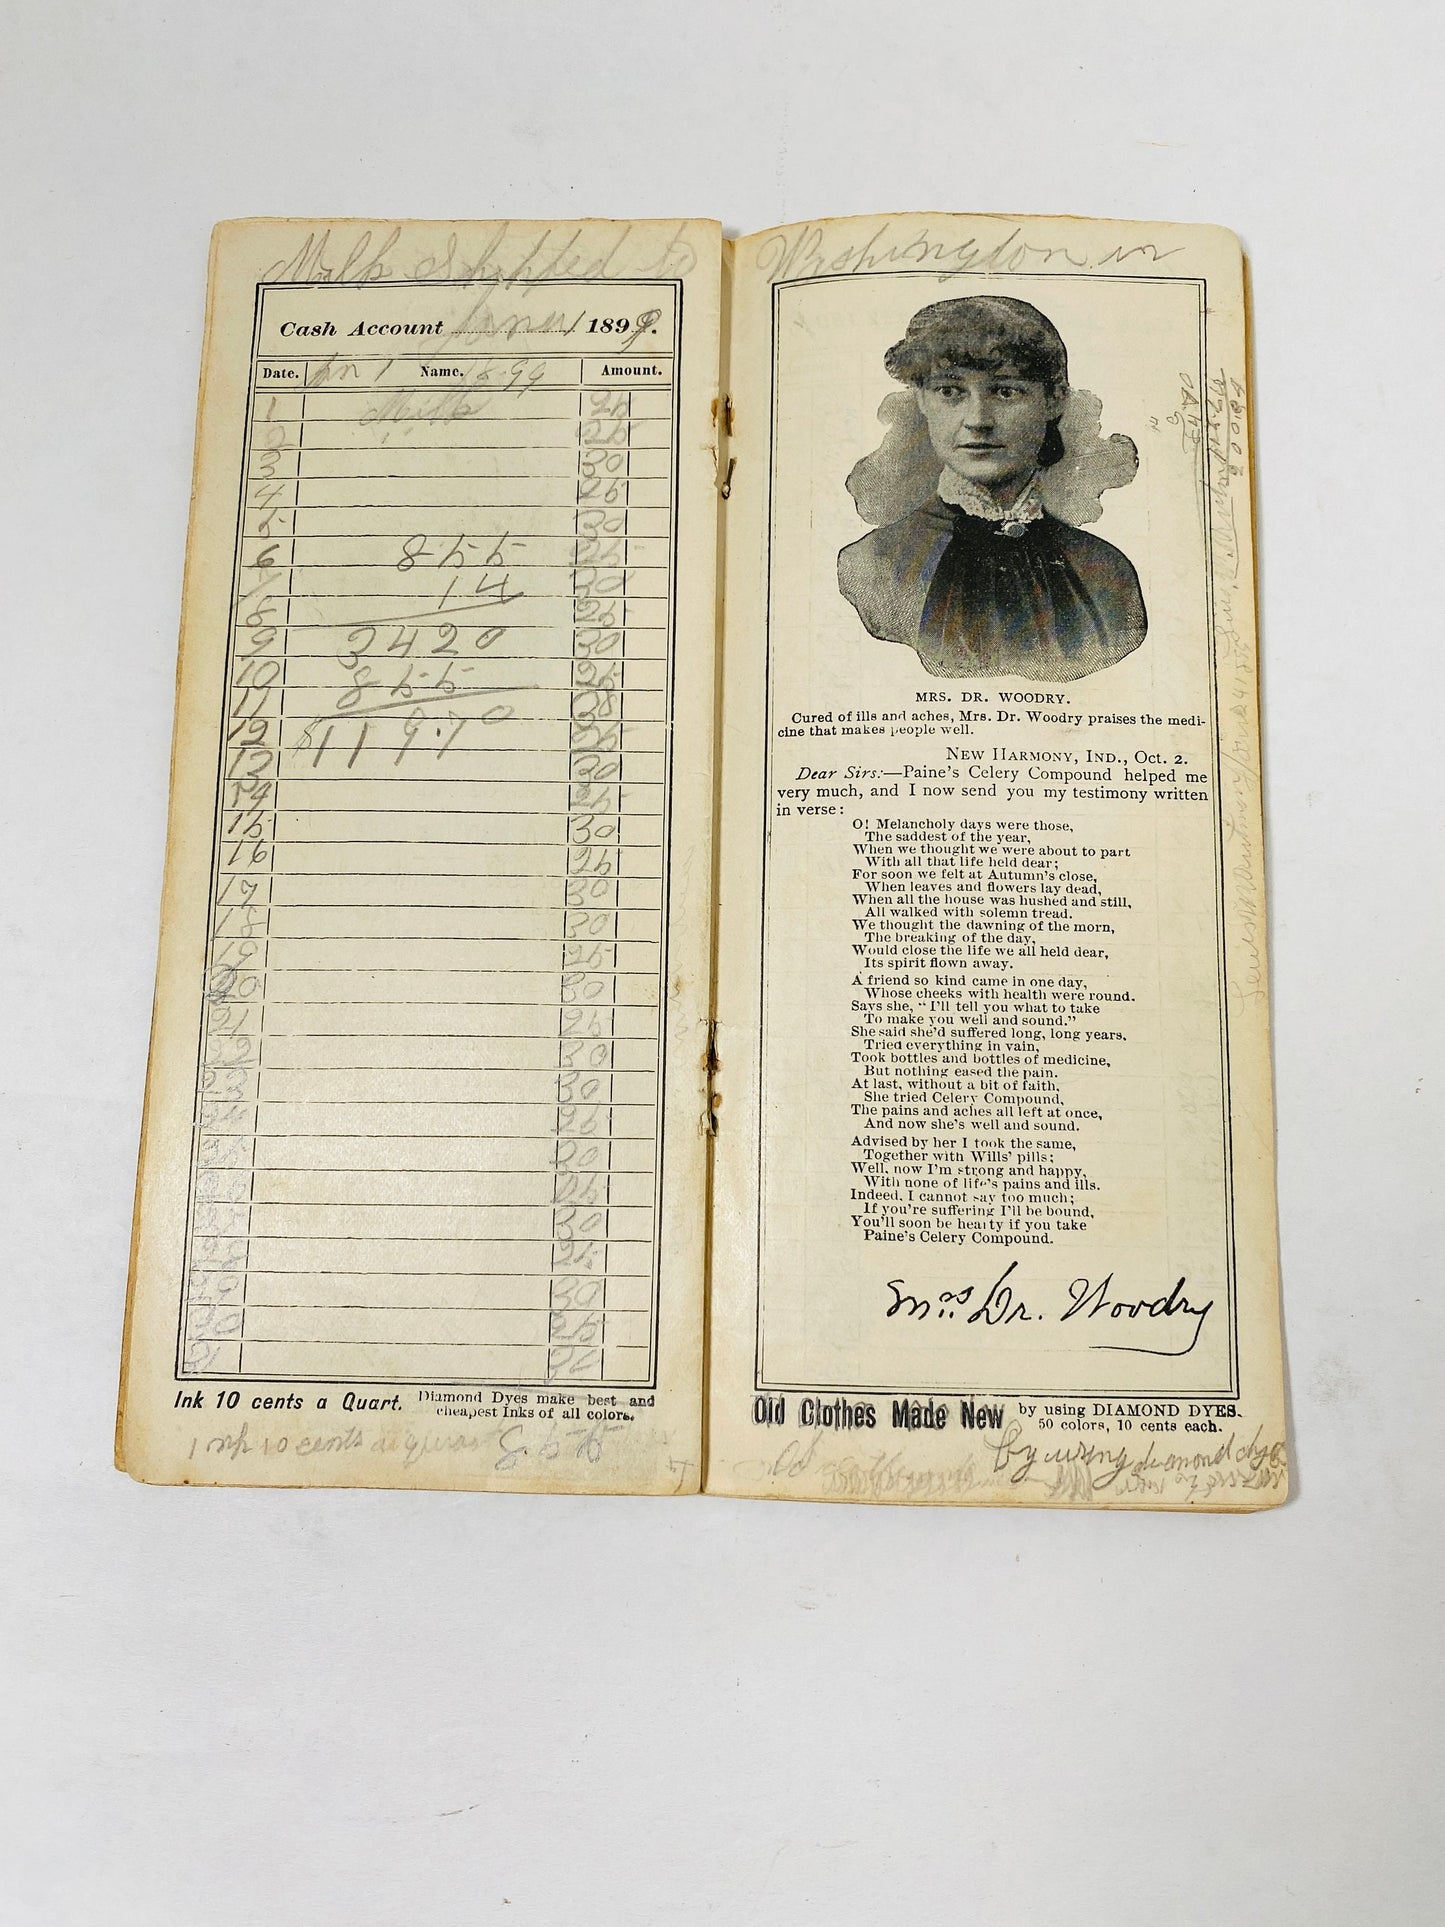 Milk Shipped to
Cash Account 1899.
Date. Jan 1 Name. 18-99 Amount.
1 Milk 25
2 25
3 30
4 25
5 30
6 855 25
7 14 30
8 25
9 3420 30
10 855 25
11 28
12 $119.70 25
13 30
14 25
15 30
16 25
17 30
18 30
19 25
20 30
21 25
22 30
23 30
24 25
30
25
30
25
30
25
Ink 10 cents a Quart. Diamond Dyes make best and
cheapest Inks of all colors.
Ink 10 cents a quart 855
Washington in
MRS. DR. WOODRY.
Cured of ills and aches, Mrs. Dr. Woodry praises the medi-
cine that makes people well.
NEW HARMONY, IND., Oct. 2.
Dear Sirs:—Paine's Celery Compound helped me
very much, and I now send you my testimony written
in verse:
O! Melancholy days were those,
The saddest of the year,
When we thought we were about to part
With all that life held dear;
For soon we felt at Autumn's close,
When leaves and flowers lay dead,
When all the house was hushed and still,
All walked with solemn tread.
We thought the dawning of the morn,
The breaking of the day,
Would close the life we all held dear,
Its spirit flown away.
A friend so kind came in one day,
Whose cheeks with health were round.
Says she, "I'll tell you what to take
To make you well and sound."
She said she'd suffered long, long years,
Tried everything in vain,
Took bottles and bottles of medicine,
But nothing eased the pain.
At last, without a bit of faith,
She tried Celery Compound,
The pains and aches all left at once,
And now she's well and sound.
Advised by her I took the same,
Together with Wills' pills;
Well, now I'm strong and happy,
With none of life's pains and ills.
Indeed, I cannot say too much;
If you're suffering I'll be bound,
You'll soon be hearty if you take
Paine's Celery Compound.
Mrs. Dr. Woodry
Old Clothes Made New by using DIAMOND DYES.
50 colors, 10 cents each.
by using diamond dyes